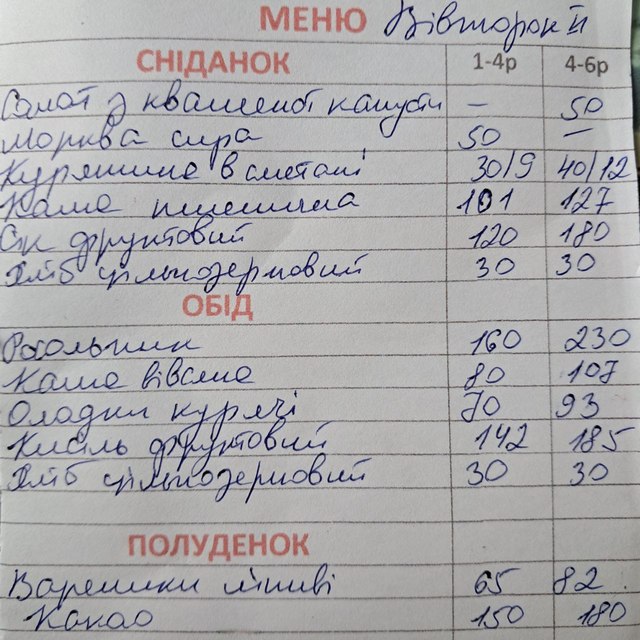 МЕНЮ Вівторок II
СНІДАНОК 1-4р 4-6р
Салат з квашеної капусти — 50
Морква сира 50 —
Курятина в сметані 30/9 40/12
Каша пшенична 101 127
Сік фруктовий 120 180
Хліб цільнозерновий 30 30
ОБІД
Росольник 160 230
Каша вівсяна 80 107
Оладки курячі 70 93
Кисіль фруктовий 142 185
Хліб цільнозерновий 30 30
ПОЛУДЕНОК
Вареники ліниві 65 82
Какао 150 180